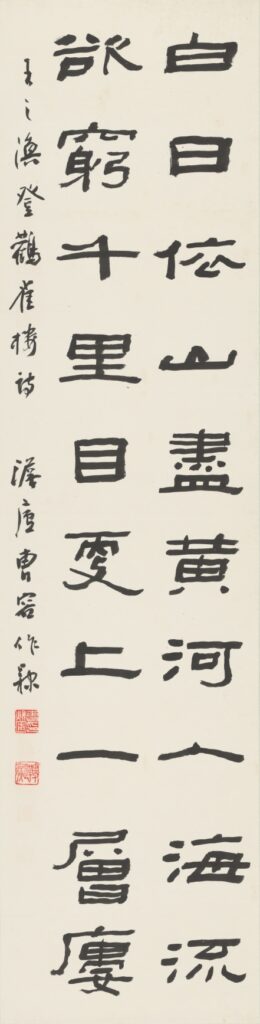 白日依山盡黃河入海流
欲窮千里目更上一層廔
王之渙登鸛雀樓詩　澹廬曹容作隸